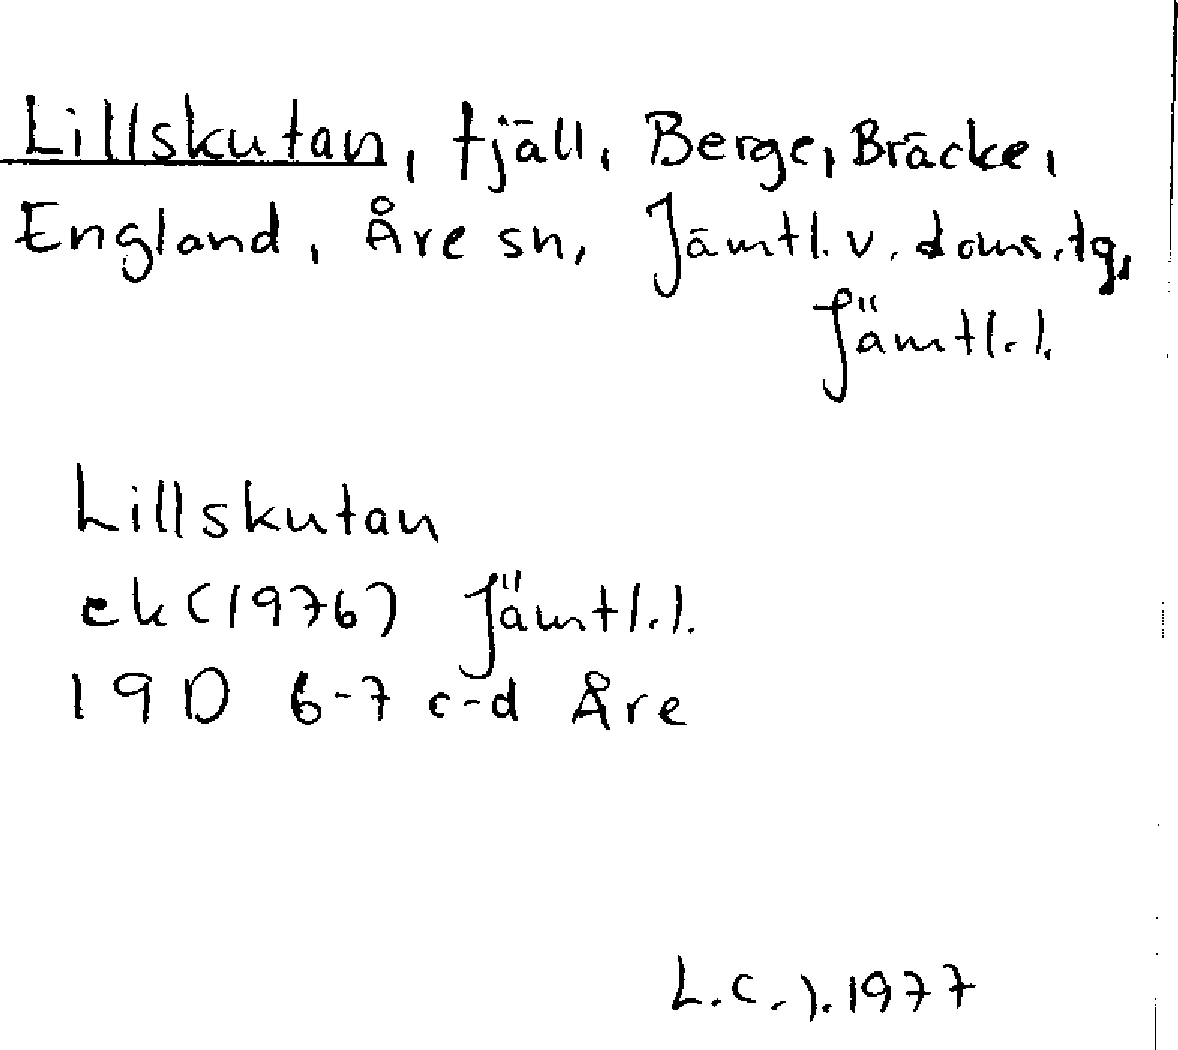 Lillskutan, fjäll, Berge, Bräcke,
England, Åre sn, Jämtl. v. doms.tg,
Jämtl. l.
Lillskutan
ek (1976) Jämtl. l.
19 D 6-7 c-d Åre
L.C. J. 1977